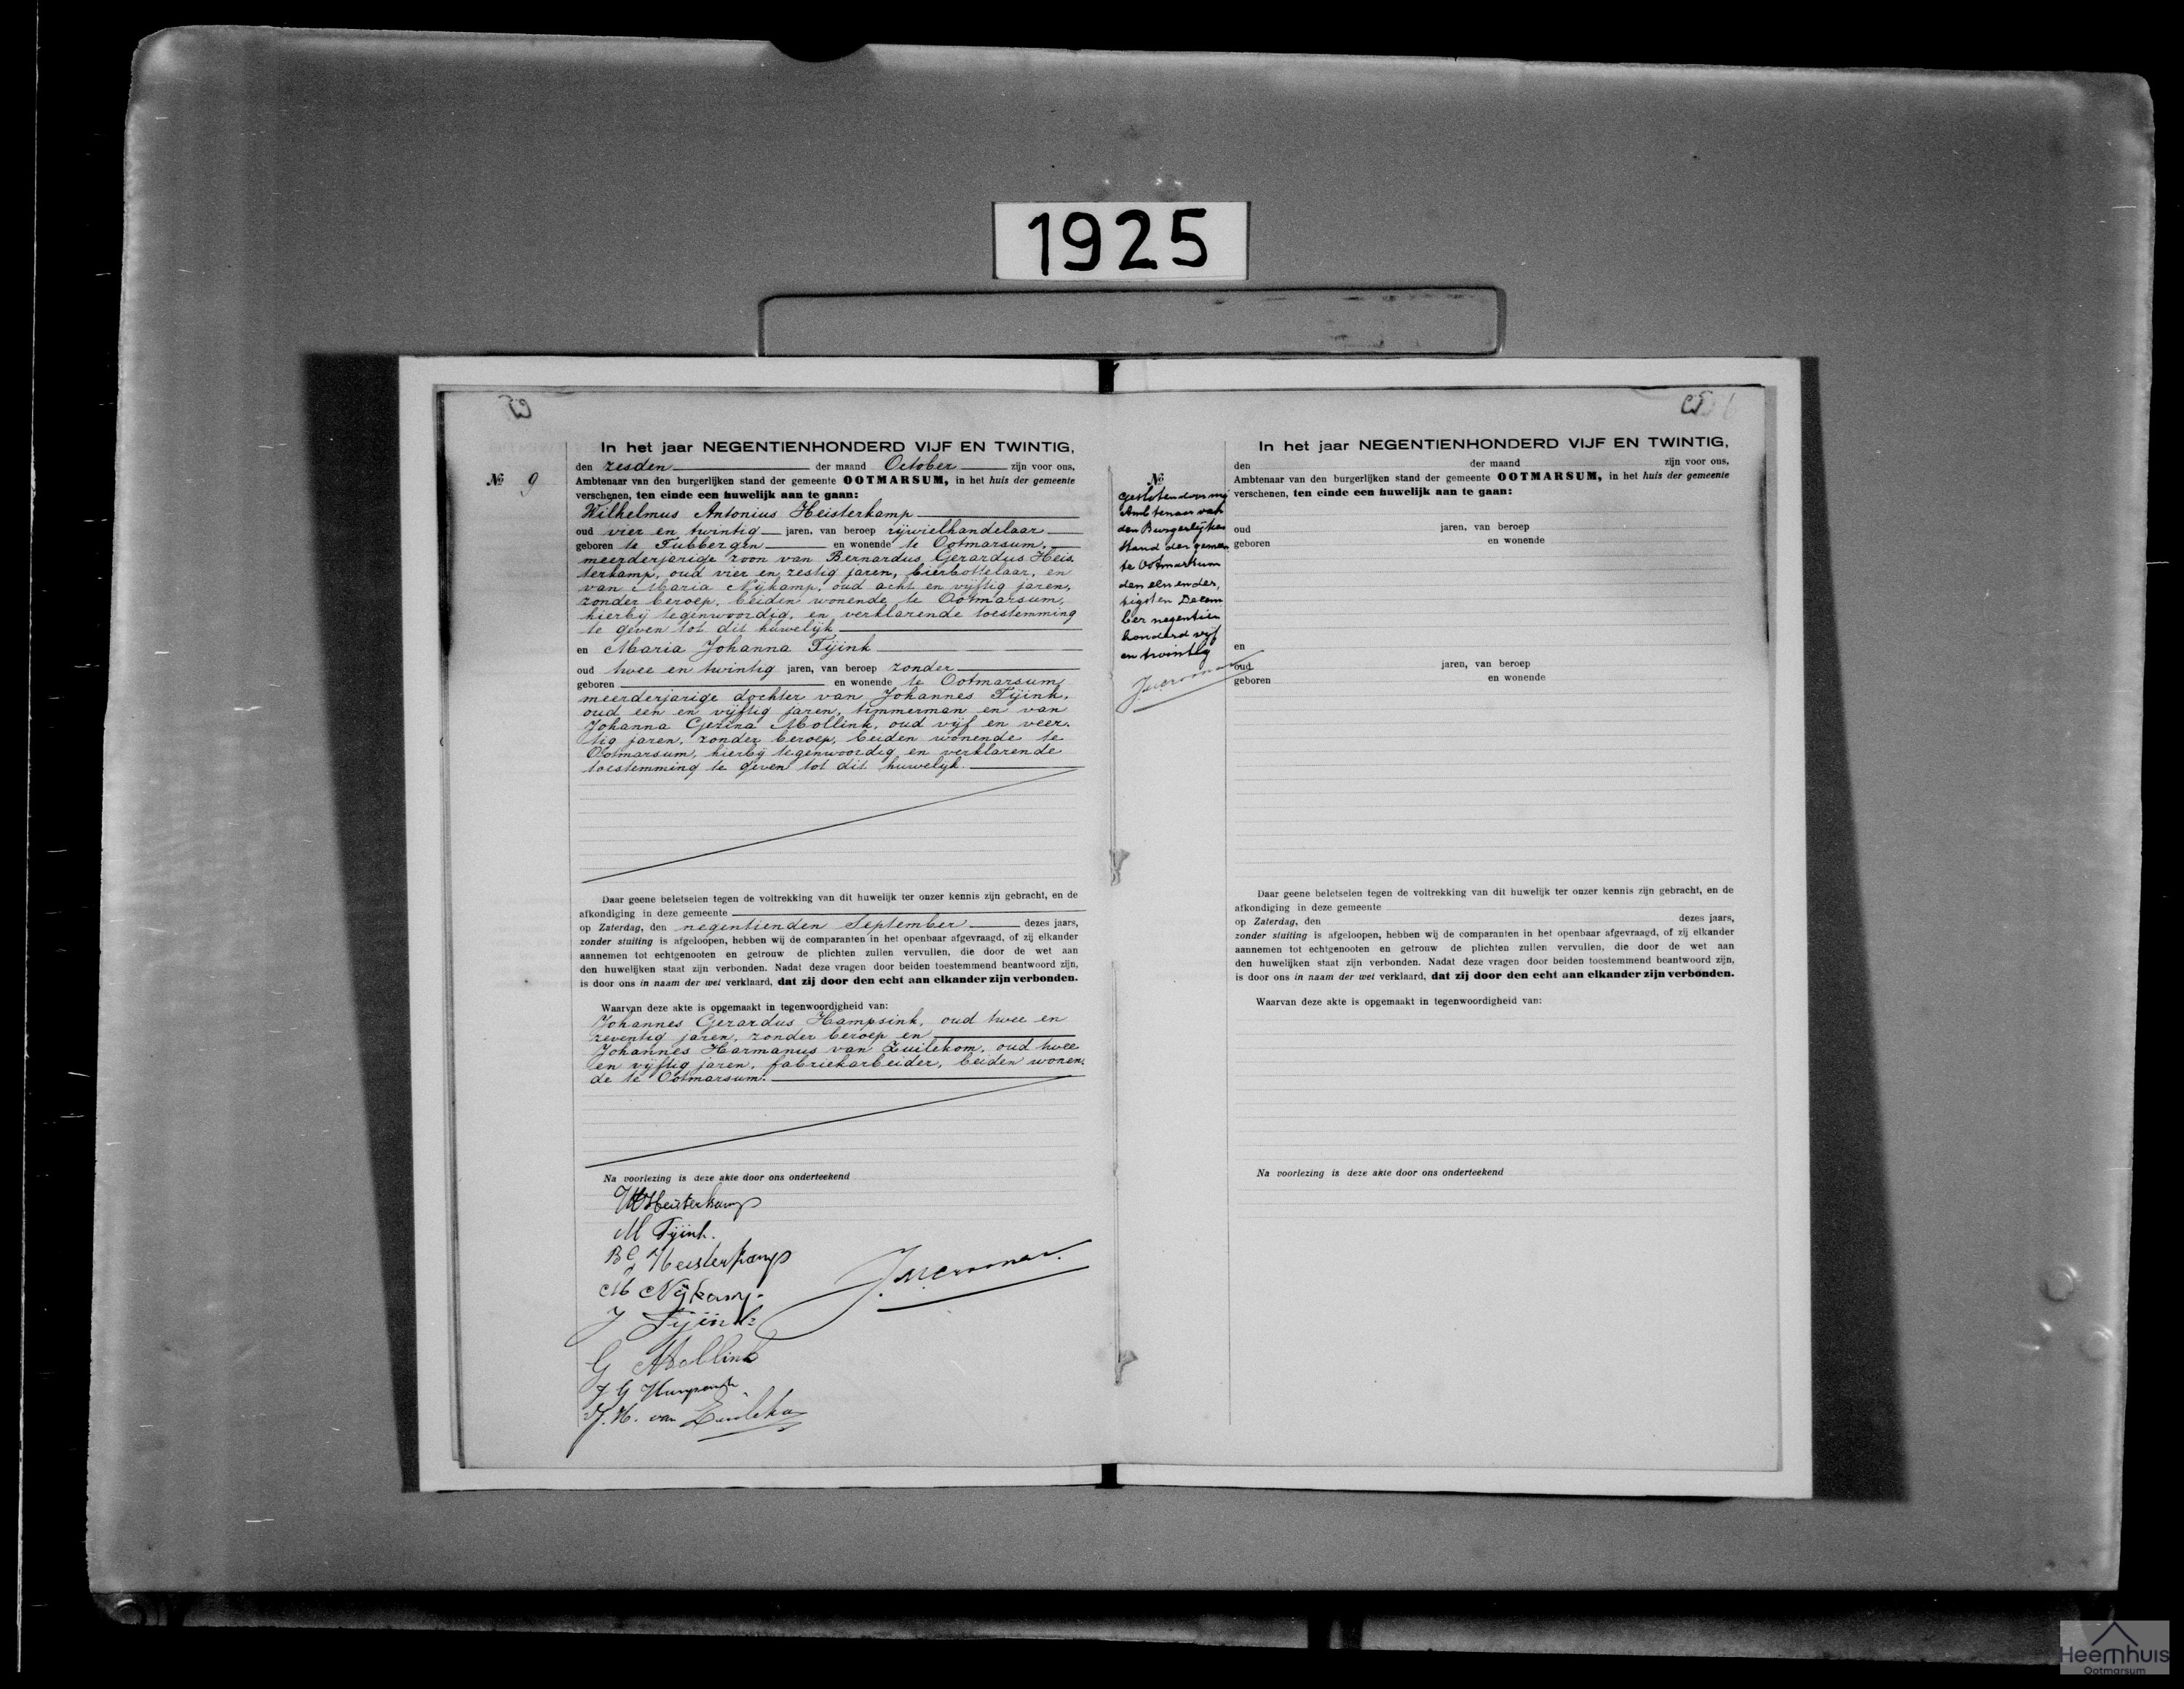 1925
In het jaar NEGENTIENHONDERD VIJF EN TWINTIG,
den zesden der maand October zijn voor ons,
№ 9
Ambtenaar van den burgerlijken stand der gemeente OOTMARSUM, in het huis der gemeente
verschenen, ten einde een huwelijk aan te gaan:
Wilhelmus Antonius Heisterkamp
oud vier en twintig jaren, van beroep rijwielhandelaar
geboren te Tubbergen en wonende te Ootmarsum,
meerderjarige zoon van Bernardus Gerardus Heis-
terkamp, oud vier en zestig jaren, bierbottelaar, en
van Maria Nijkamp, oud acht en vijftig jaren,
zonder beroep, beiden wonende te Ootmarsum,
hierbij tegenwoordig, en verklarende toestemming
te geven tot dit huwelijk
en Maria Johanna Tijink
oud twee en twintig jaren, van beroep zonder
geboren en wonende te Ootmarsum,
meerderjarige dochter van Johannes Tijink,
oud een en vijftig jaren, timmerman en van
Johanna Gezina Mollink, oud vijf en veer-
tig jaren, zonder beroep, beiden wonende te
Ootmarsum, hierbij tegenwoordig en verklarende
toestemming te geven tot dit huwelijk.
Daar geene beletselen tegen de voltrekking van dit huwelijk ter onzer kennis zijn gebracht, en de
afkondiging in deze gemeente
op Zaterdag, den negentienden September dezes jaars,
zonder stuiting is afgeloopen, hebben wij de comparanten in het openbaar afgevraagd, of zij elkander
aannemen tot echtgenooten en getrouw de plichten zullen vervullen, die door de wet aan
den huwelijken staat zijn verbonden. Nadat deze vragen door beiden toestemmend beantwoord zijn,
is door ons in naam der wet verklaard, dat zij door den echt aan elkander zijn verbonden.
Waarvan deze akte is opgemaakt in tegenwoordigheid van:
Johannes Gerardus Hampsink, oud twee en
zeventig jaren, zonder beroep en
Johannes Harmanus van Zuilekom, oud twee
en vijftig jaren, fabriekarbeider, beiden wonen-
de te Ootmarsum.
Na voorlezing is deze akte door ons onderteekend
Heisterkamp
M Tijink.
BG Heisterkamp
M Nijkamp.
J Tijink
G Mollink
J G Hampsink
J. H. van Zuilekom
In het jaar NEGENTIENHONDERD VIJF EN TWINTIG,
den der maand zijn voor ons,
№
Ambtenaar van den burgerlijken stand der gemeente OOTMARSUM, in het huis der gemeente
verschenen, ten einde een huwelijk aan te gaan:
Gesloten door mij
Ambtenaar van
den Burgerlijken
Stand der gemeen
te Ootmarsum
den een en der,
tigsten Decem
ber negentien
honderd vijf
en twintig
oud jaren, van beroep
geboren en wonende
en
oud jaren, van beroep
geboren en wonende
Daar geene beletselen tegen de voltrekking van dit huwelijk ter onzer kennis zijn gebracht, en de
afkondiging in deze gemeente
op Zaterdag, den dezes jaars,
zonder stuiting is afgeloopen, hebben wij de comparanten in het openbaar afgevraagd, of zij elkander
aannemen tot echtgenooten en getrouw de plichten zullen vervullen, die door de wet aan
den huwelijken staat zijn verbonden. Nadat deze vragen door beiden toestemmend beantwoord zijn,
is door ons in naam der wet verklaard, dat zij door den echt aan elkander zijn verbonden.
Waarvan deze akte is opgemaakt in tegenwoordigheid van:
Na voorlezing is deze akte door ons onderteekend
Heemhuis
Ootmarsum